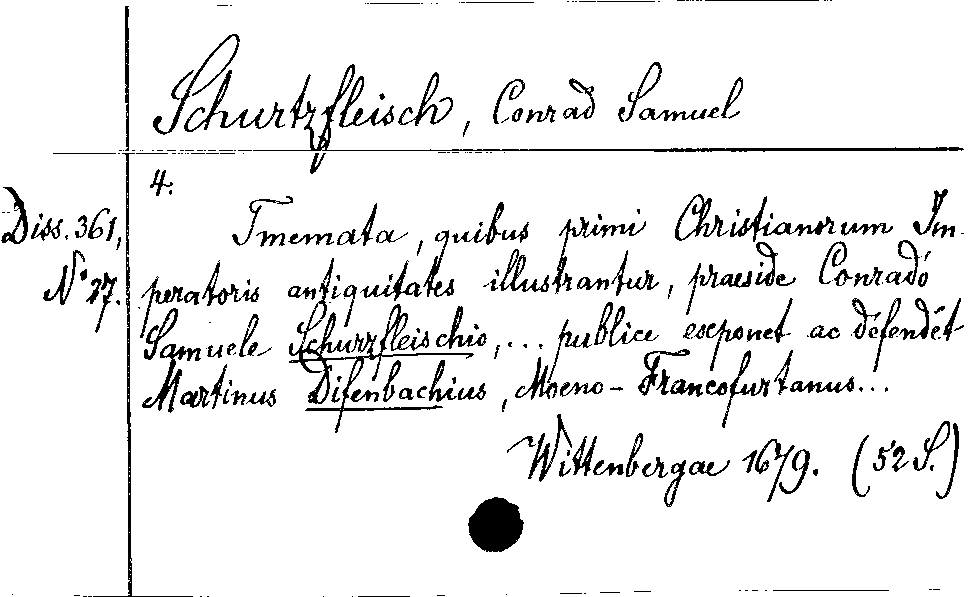 Schurtzfleisch, Conrad Samuel
4.
Diss. 361,
N° 27.
Tmemata, quibus primi Christianorum Im-
peratoris antiquitates illustrantur, praeside Conrado
Samuele Schurzfleischio, ... publice exponet ac defendet
Martinus Difenbachius, Moeno-Francofurtanus...
Wittenbergae 1679. (52 S.)